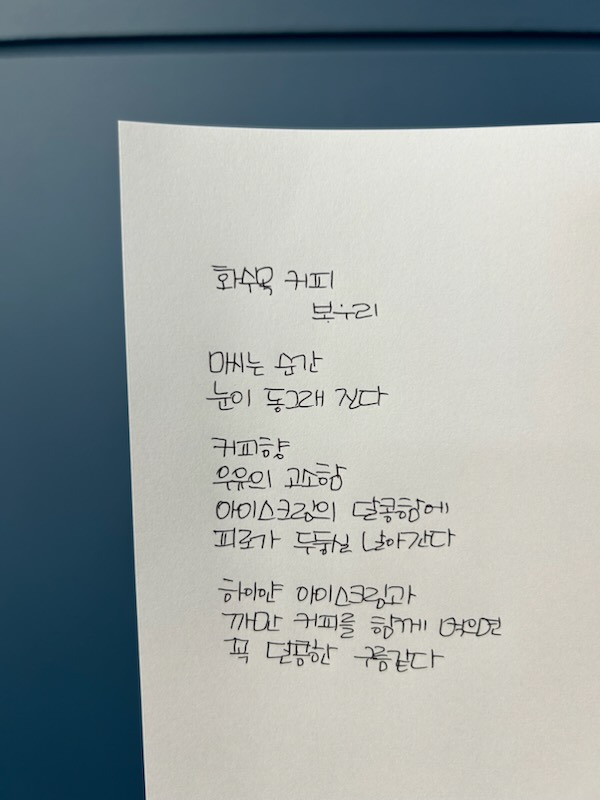 화수목 커피
보누리
마씨는 순간
눈이 동그래 진다
커피향
우유의 고소함
아이스크림의 달콤함에
피로가 두둥실 날아간다
하이얀 아이스크림과
까만 커피를 함께 먹으면
꼭 달콤한 구름같다